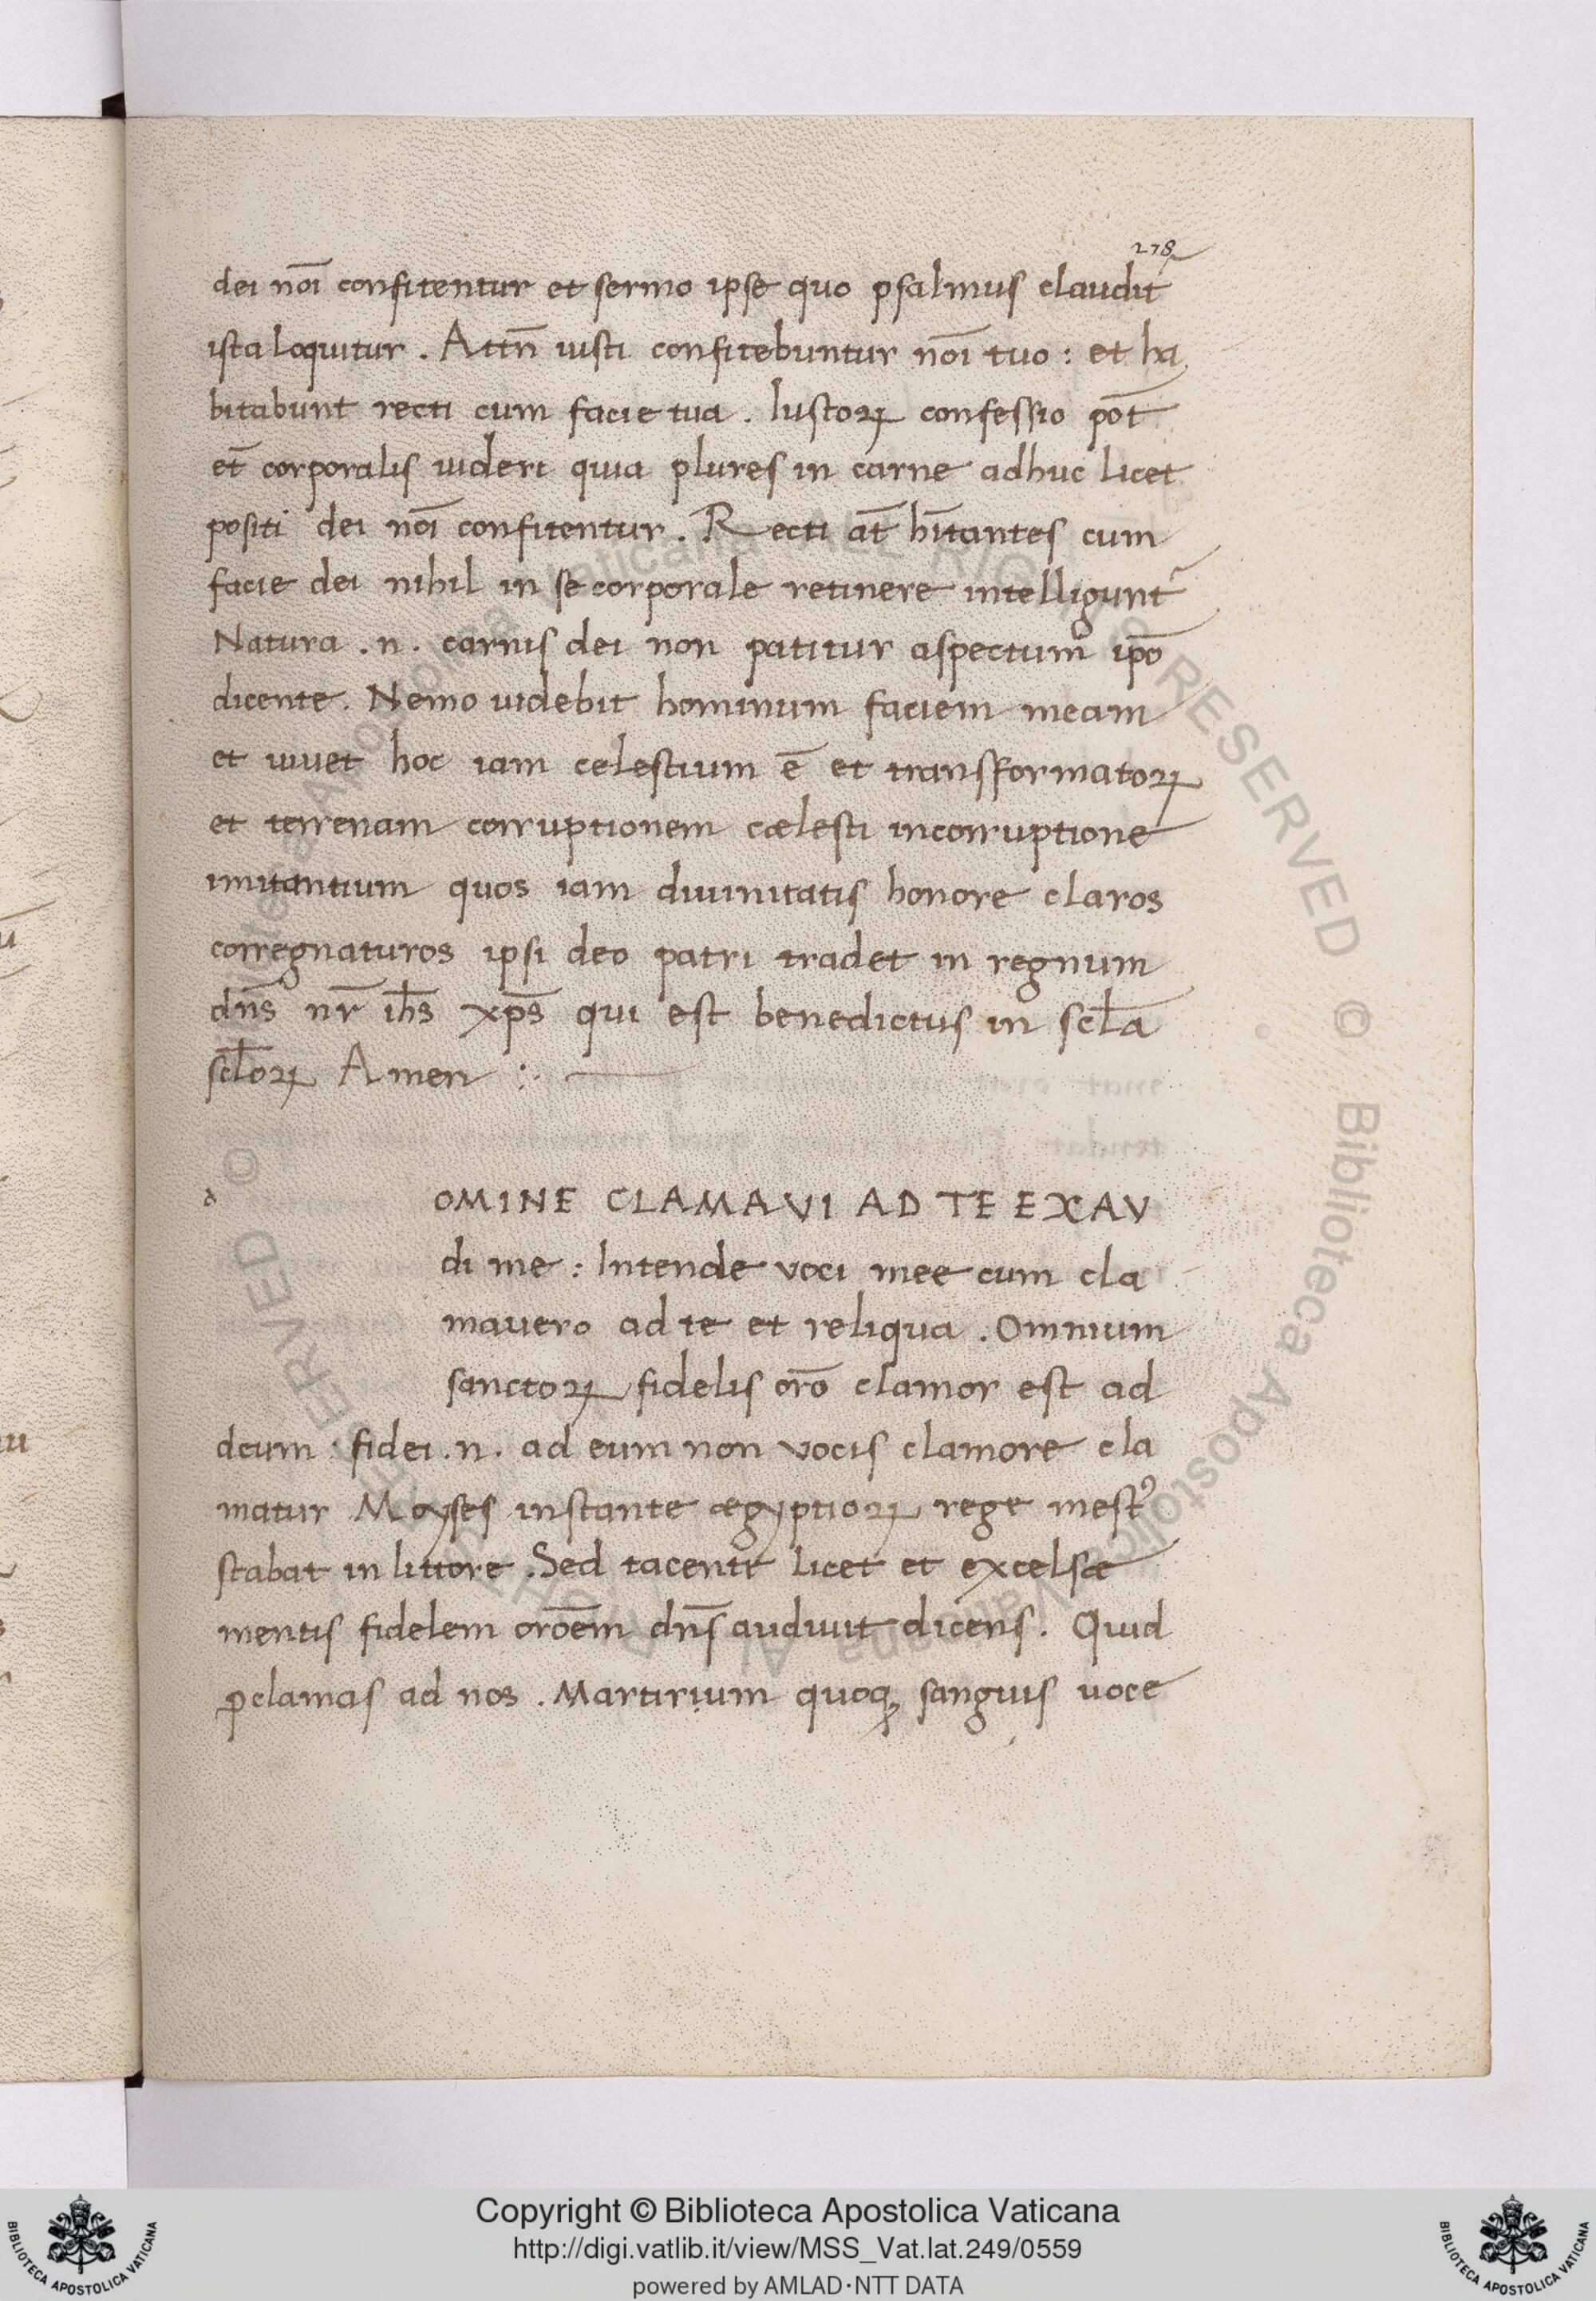 278
dei noī confitentur et sermo ipse quo psalmus claudit᷑
ista loquitur . Attn̄ iusti confitebuntur noī tuo : et ha
bitabunt recti cum facie tua . Iustoꝝ confessio pōt
et̄ corporalis uideri quia plures in carne adhuc licet
positi dei noī confitentur . Recti at̄ hītantes cum
facie dei nihil in se corporale retinere intelligunt᷑
Natura .n. carnis dei non patitur aspectum ipō
dicente . Nemo uidebit hominum faciem meam
et uiuet hoc iam celestium ē et transformatoꝝ
et terrenam corruptionem cælesti incorruptione
imitantium quos iam diuinitatis honore claros
corregnaturos ipsi deo patri tradet in regnum
dn̄s nr̄ ih̄s xp̄s qui est benedictus in scl̄a
scl̄oꝝ Amen :·
d OMINE CLAMAVI AD TE EXAV
di me : Intende voci mee cum cla
mauero ad te et reliqua . Omnium
sanctoꝝ fidelis orō clamor est ad
deum : fidei .n. ad eum non vocis clamore cla
matur Moyses instante ægyptioꝝ rege mestꝰ
stabat in littore . Sed tacente licet et excelsæ
mentis fidelem orōem dn̄s audiuit dicens . Quid
ꝓclamas ad nos . Martirium quoqꝫ sanguis uoce
Copyright © Biblioteca Apostolica Vaticana
http://digi.vatlib.it/view/MSS_Vat.lat.249/0559
powered by AMLAD·NTT DATA
BIBLIOTECA APOSTOLICA VATICANA
BIBLIOTECA APOSTOLICA VATICANA